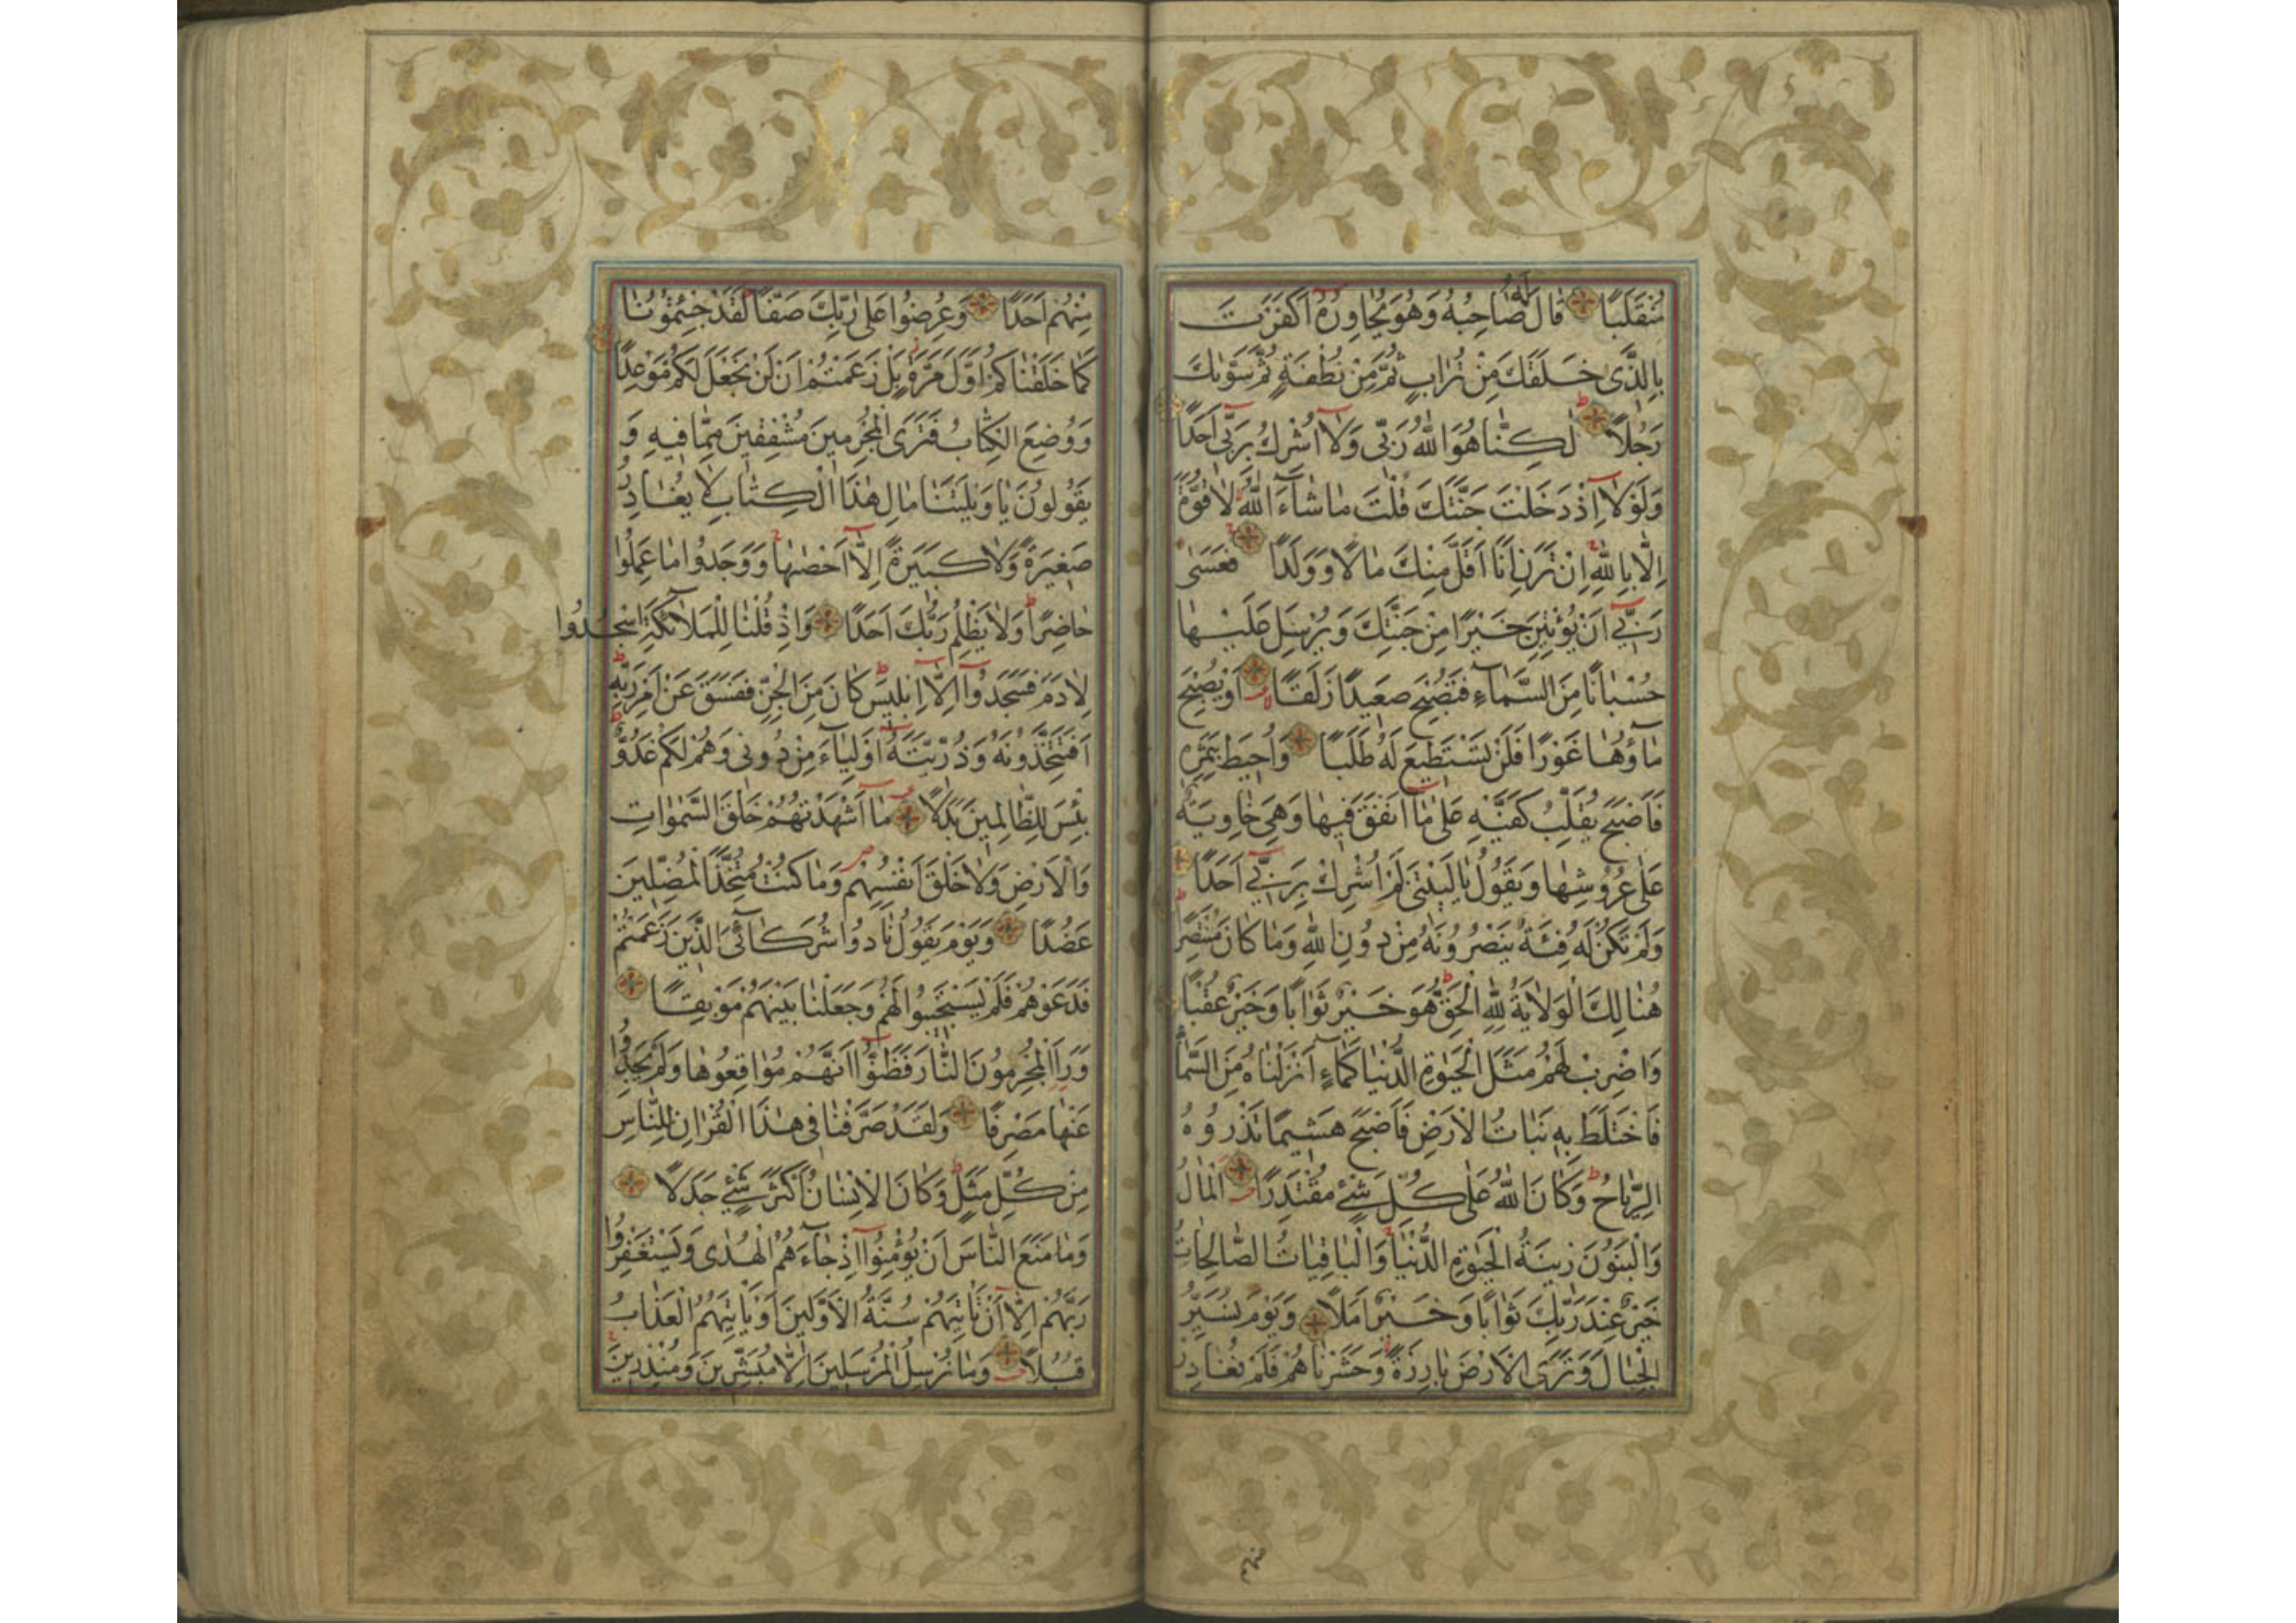 مُنْقَلَبًا قَالَ لَهُ صَاحِبُهُ وَهُوَ يُحَاوِرُهُ أَكَفَرْتَ
بِالَّذِى خَلَقَكَ مِنْ تُرَابٍ ثُمَّ مِنْ نُطْفَةٍ ثُمَّ سَوّٰيكَ
رَجُلًا لٰكِنَّا هُوَ اللّٰهُ رَبِّى وَلَا اُشْرِكُ بِرَبِّى اَحَدًا
وَلَوْلَا اِذْ دَخَلْتَ جَنَّتَكَ قُلْتَ مَا شَاءَ اللّٰهُ لَا قُوَّةَ
اِلَّا بِاللّٰهِ اِنْ تَرَنِ اَنَا اَقَلَّ مِنْكَ مَالًا وَوَلَدًا فَعَسٰى
رَبِّى اَنْ يُؤْتِيَنِ خَيْرًا مِنْ جَنَّتِكَ وَيُرْسِلَ عَلَيْهَا
حُسْبَانًا مِنَ السَّمَاءِ فَتُصْبِحَ صَعِيدًا زَلَقًا اَوْ يُصْبِحَ
مَاؤُهَا غَوْرًا فَلَنْ تَسْتَطِيعَ لَهُ طَلَبًا وَاُحِيطَ بِثَمَرِهِ
فَاَصْبَحَ يُقَلِّبُ كَفَّيْهِ عَلٰى مَا اَنْفَقَ فِيهَا وَهِىَ خَاوِيَةٌ
عَلٰى عُرُوشِهَا وَيَقُولُ يَالَيْتَنِى لَمْ اُشْرِكْ بِرَبِّى اَحَدًا
وَلَمْ تَكُنْ لَهُ فِئَةٌ يَنْصُرُونَهُ مِنْ دُونِ اللّٰهِ وَمَا كَانَ مُنْتَصِرًا
هُنَالِكَ الْوَلَايَةُ لِلّٰهِ الْحَقِّ هُوَ خَيْرٌ ثَوَابًا وَخَيْرٌ عُقْبًا
وَاضْرِبْ لَهُمْ مَثَلَ الْحَيٰوةِ الدُّنْيَا كَمَاءٍ اَنْزَلْنَاهُ مِنَ السَّمَاءِ
فَاخْتَلَطَ بِهِ نَبَاتُ الْاَرْضِ فَاَصْبَحَ هَشِيمًا تَذْرُوهُ
الرِّيَاحُ وَكَانَ اللّٰهُ عَلٰى كُلِّ شَىْءٍ مُقْتَدِرًا اَلْمَالُ
وَالْبَنُونَ زِينَةُ الْحَيٰوةِ الدُّنْيَا وَالْبَاقِيَاتُ الصَّالِحَاتُ
خَيْرٌ عِنْدَ رَبِّكَ ثَوَابًا وَخَيْرٌ اَمَلًا وَيَوْمَ نُسَيِّرُ
الْجِبَالَ وَتَرَى الْاَرْضَ بَارِزَةً وَحَشَرْنَاهُمْ فَلَمْ نُغَادِرْ
مِنْهُمْ اَحَدًا وَعُرِضُوا عَلٰى رَبِّكَ صَفًّا لَقَدْ جِئْتُمُونَا
كَمَا خَلَقْنَاكُمْ اَوَّلَ مَرَّةٍ بَلْ زَعَمْتُمْ اَنْ لَنْ نَجْعَلَ لَكُمْ مَوْعِدًا
وَوُضِعَ الْكِتَابُ فَتَرَى الْمُجْرِمِينَ مُشْفِقِينَ مِمَّا فِيهِ وَ
يَقُولُونَ يَا وَيْلَتَنَا مَالِ هٰذَا الْكِتَابِ لَا يُغَادِرُ
صَغِيرَةً وَلَا كَبِيرَةً اِلَّا اَحْصٰيهَا وَوَجَدُوا مَا عَمِلُوا
حَاضِرًا وَلَا يَظْلِمُ رَبُّكَ اَحَدًا وَاِذْ قُلْنَا لِلْمَلَائِكَةِ اسْجُدُوا
لِاٰدَمَ فَسَجَدُوا اِلَّا اِبْلِيسَ كَانَ مِنَ الْجِنِّ فَفَسَقَ عَنْ اَمْرِ رَبِّهِ
اَفَتَتَّخِذُونَهُ وَذُرِّيَّتَهُ اَوْلِيَاءَ مِنْ دُونِى وَهُمْ لَكُمْ عَدُوٌّ
بِئْسَ لِلظَّالِمِينَ بَدَلًا مَا اَشْهَدْتُهُمْ خَلْقَ السَّمٰوَاتِ
وَالْاَرْضِ وَلَا خَلْقَ اَنْفُسِهِمْ وَمَا كُنْتُ مُتَّخِذَ الْمُضِلِّينَ
عَضُدًا وَيَوْمَ يَقُولُ نَادُوا شُرَكَائِىَ الَّذِينَ زَعَمْتُمْ
فَدَعَوْهُمْ فَلَمْ يَسْتَجِيبُوا لَهُمْ وَجَعَلْنَا بَيْنَهُمْ مَوْبِقًا
وَرَاَ الْمُجْرِمُونَ النَّارَ فَظَنُّوا اَنَّهُمْ مُوَاقِعُوهَا وَلَمْ يَجِدُوا
عَنْهَا مَصْرِفًا وَلَقَدْ صَرَّفْنَا فِى هٰذَا الْقُرْاٰنِ لِلنَّاسِ
مِنْ كُلِّ مَثَلٍ وَكَانَ الْاِنْسَانُ اَكْثَرَ شَىْءٍ جَدَلًا
وَمَا مَنَعَ النَّاسَ اَنْ يُؤْمِنُوا اِذْ جَاءَهُمُ الْهُدٰى وَيَسْتَغْفِرُوا
رَبَّهُمْ اِلَّا اَنْ تَاْتِيَهُمْ سُنَّةُ الْاَوَّلِينَ اَوْ يَاْتِيَهُمُ الْعَذَابُ
قُبُلًا وَمَا نُرْسِلُ الْمُرْسَلِينَ اِلَّا مُبَشِّرِينَ وَمُنْذِرِينَ